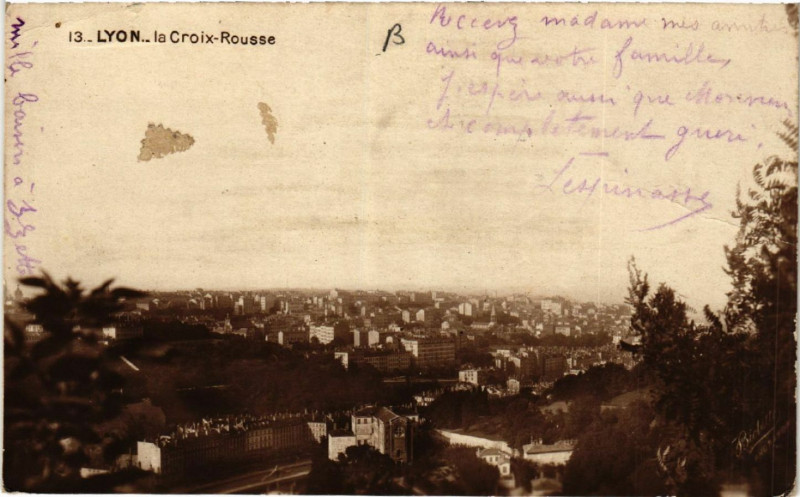 13.. LYON... la Croix-Rousse
β
Recevez madame mes amitiés
ainsi que votre famille,
J'espère aussi que Monsieur
est complètement guéri.
Lespinasse
mille baisers à